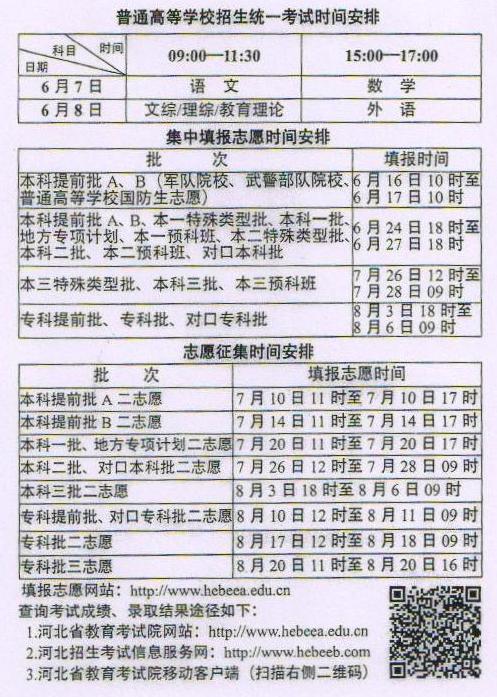 普通高等学校招生统一考试时间安排
科目 时间
日期
09:00—11:30 15:00—17:00
6月7日 语 文 数 学
6月8日 文综/理综/教育理论 外 语
集中填报志愿时间安排
批 次 填报时间
本科提前批A、B（军队院校、武警部队院校、 6月16日10时至
普通高等学校国防生志愿） 6月17日10时
本科提前批A、B、本一特殊类型批、本科一批、 6月24日18时至
地方专项计划、本一预科班、本二特殊类型批、 6月27日18时
本科二批、本二预科班、对口本科批
本三特殊类型批、本科三批、本三预科班 7月26日12时至
7月28日09时
专科提前批、专科批、对口专科批 8月3日18时至
8月6日09时
志愿征集时间安排
批 次 填报志愿时间
本科提前批A二志愿 7月10日11时至7月10日17时
本科提前批B二志愿 7月14日11时至7月14日17时
本科一批、地方专项计划二志愿 7月20日11时至7月20日17时
本科二批、对口本科批二志愿 7月26日12时至7月28日09时
本科三批二志愿 8月3日18时至8月6日09时
专科提前批、对口专科批二志愿 8月10日12时至8月11日09时
专科批二志愿 8月17日12时至8月18日09时
专科批三志愿 8月20日11时至8月20日16时
填报志愿网站：http://www.hebeea.edu.cn
查询考试成绩、录取结果途径如下：
1.河北省教育考试院网站：http://www.hebeea.edu.cn
2.河北招生考试信息服务网：http://www.hebeeb.com
3.河北省教育考试院移动客户端（扫描右侧二维码）